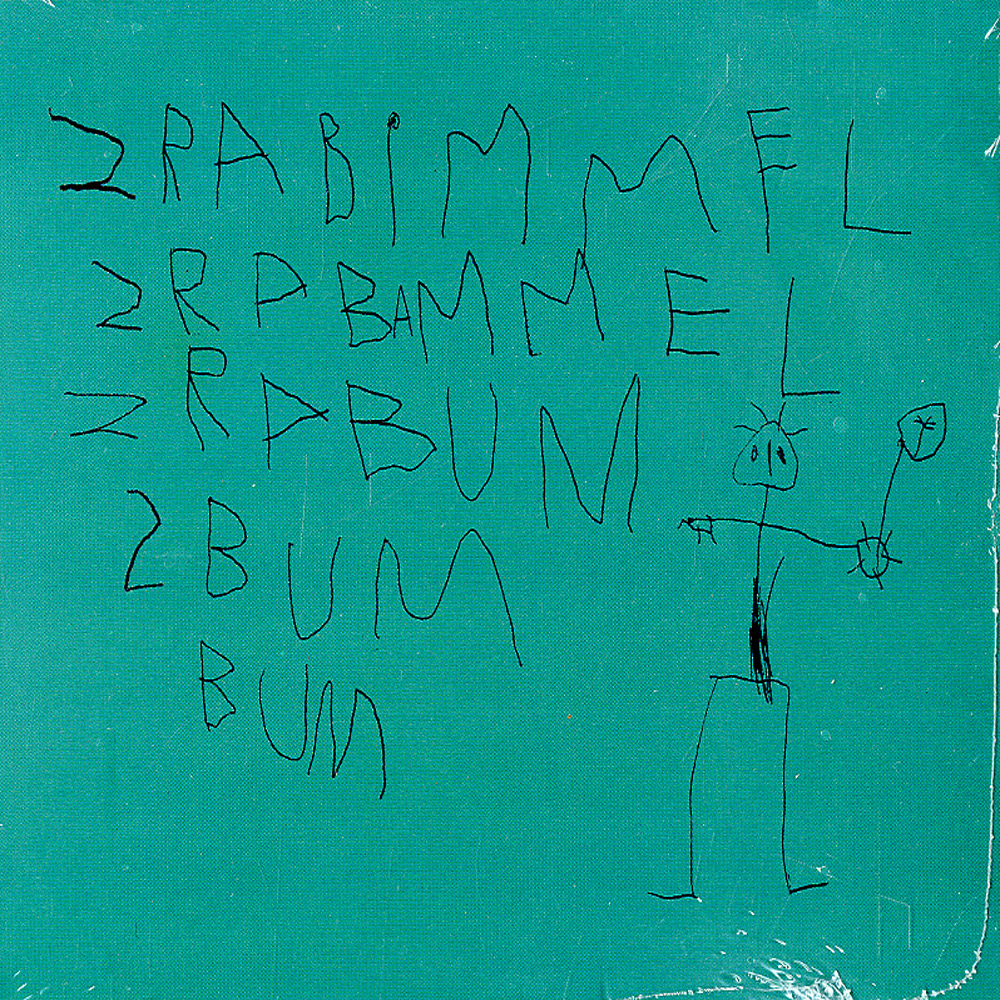 2RABiMMEL
2RABAMMEL
2RABUM
2BUM
BUM